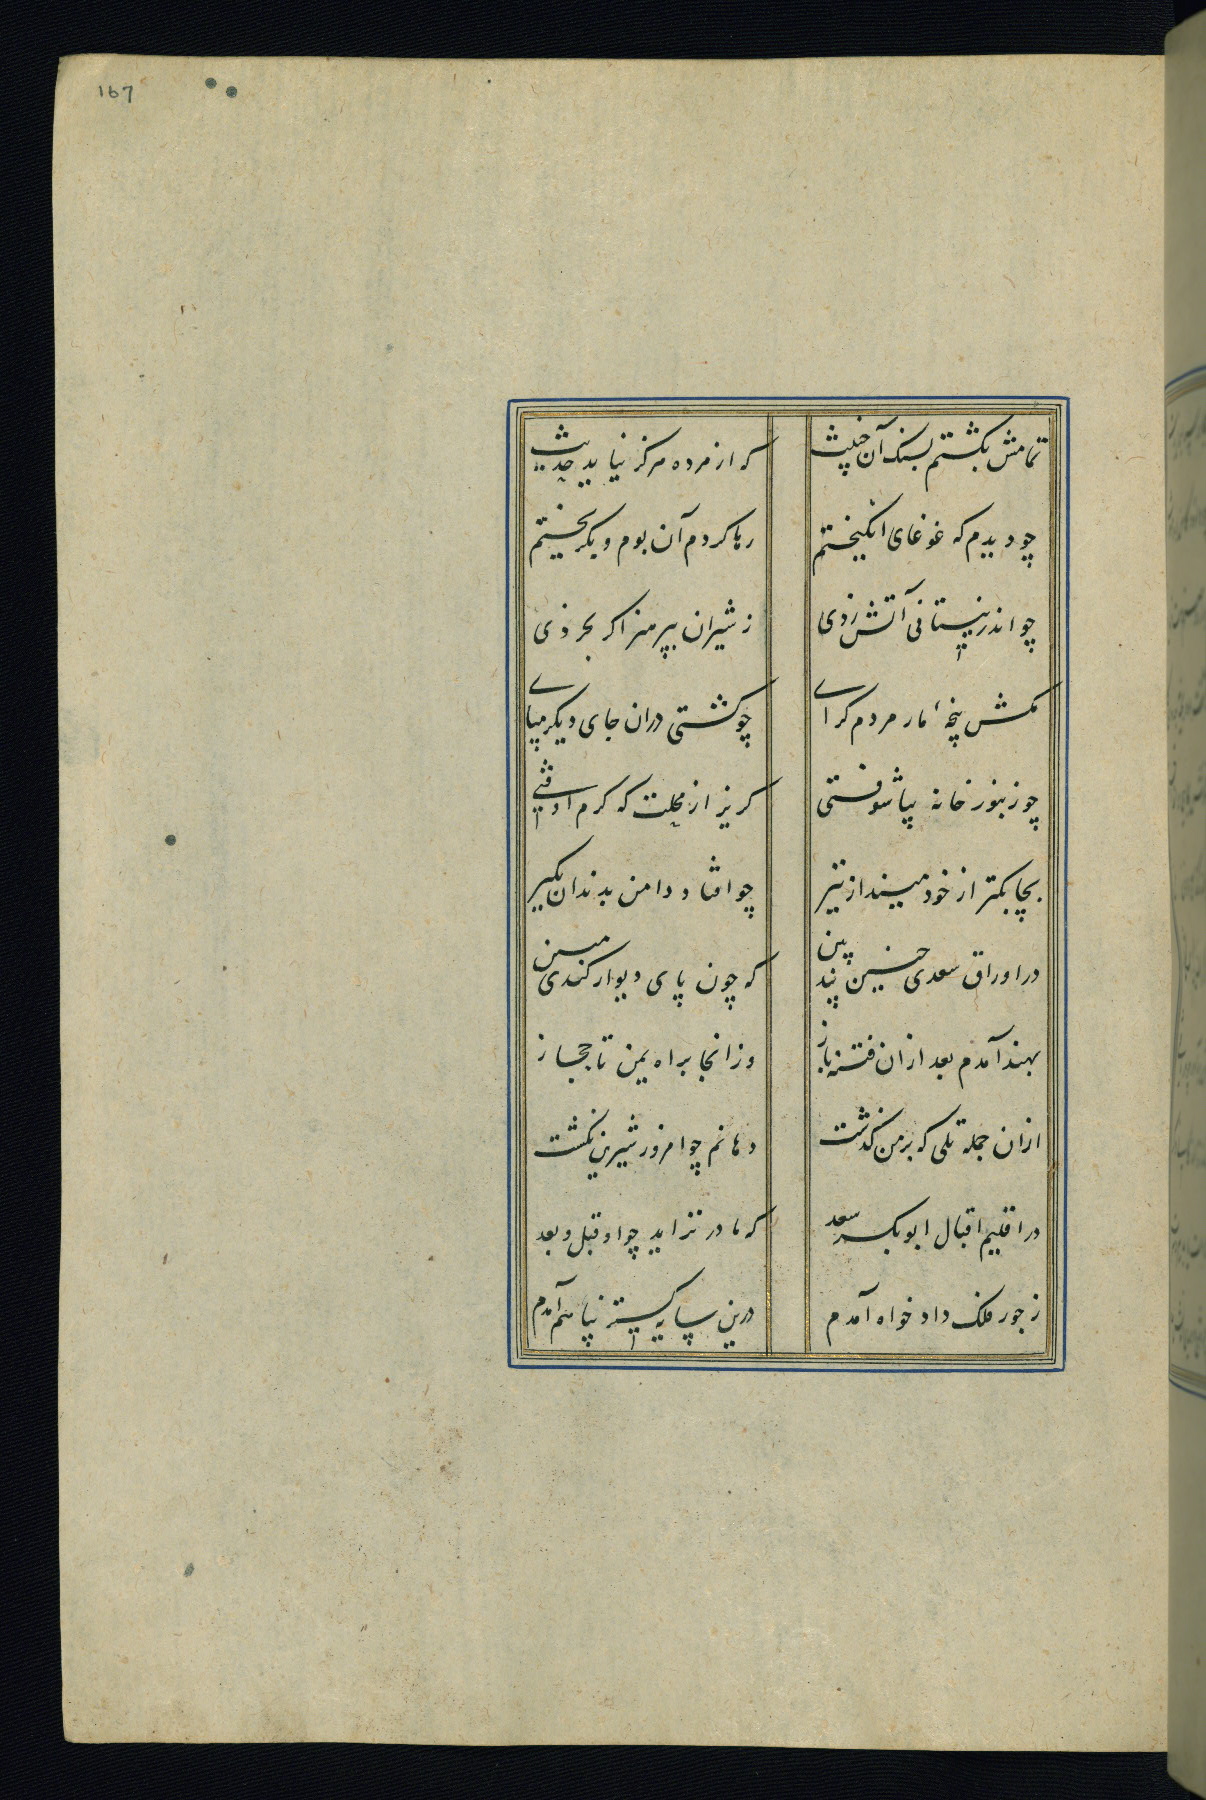 167
تمامش بکشتم بسنک آن خبیث که از مرده هرکز نیاید حدیث
چو دیدم که غوغای انکیختم رها کردم آن بوم و بکریختم
چو اندر نیستانی آتش زدی ز شیران بپرهیز اکر بخردی
مکش بچهٔ مار مردم کزای چو کشتی دران جای دیکر مپای
چو زنبور خانه بیاشوفتی کریز از محلت که کرم اوفتی
بچابکتر از خود مینداز تیر چو افتاد دامن بدندان بکیر
در اوراق سعدی چنین پند نیست که چون پای دیوار کندی مایست
بهند آمدم بعد ازان فتنه باز وزانجا براه یمن تا حجاز
ازان جمله تلخی که بر من کذشت دهانم جز امروز شیرین نکشت
در اقلیم اقبال ابوبکر سعد که مادر نزاید چو او قبل و بعد
ز جور فلک داد خواه آمدم درین سایه کستر پناهم آمدم